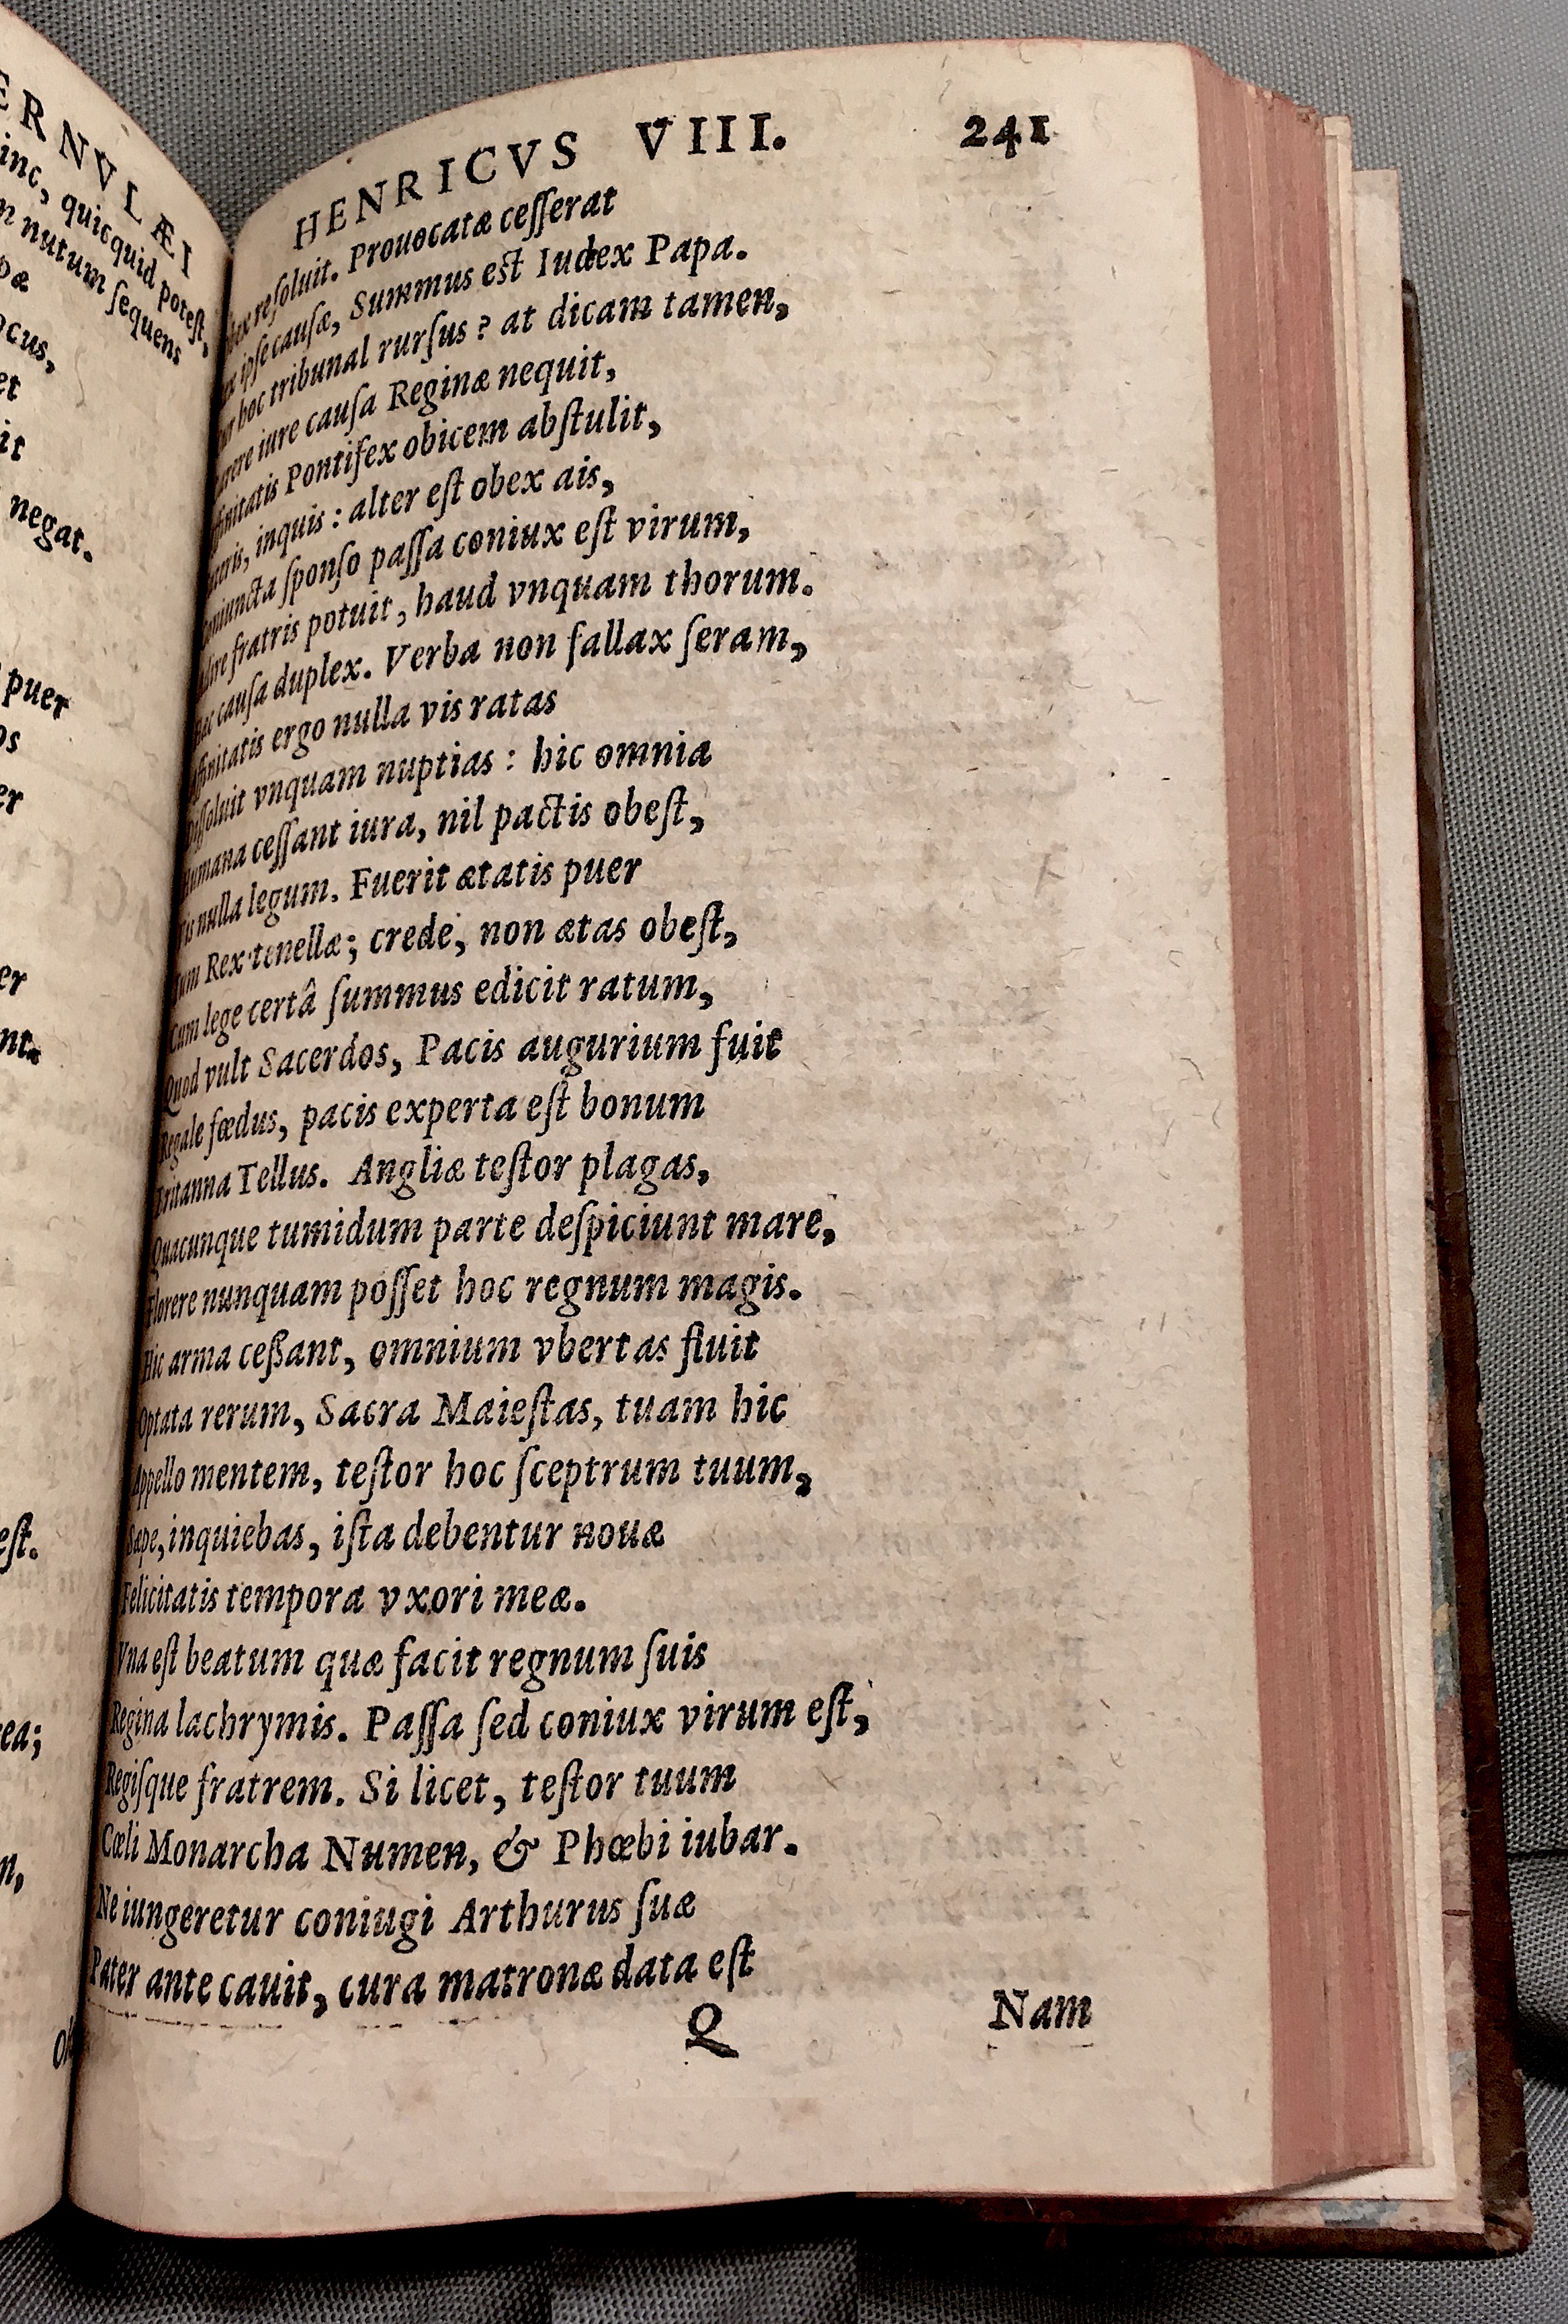 ERNVLÆI
inc, quicquid potest,
nutum ſequens
ocus,
negat.
puer
HENRICVS VIII. 241
reſoluit. Prouocatæ ceſſerat
ipſe cauſæ, Summus est Iudex Papa.
hoc tribunal rurſus ? at dicam tamen,
iure cauſa Reginæ nequit,
Pontifex obicem abſtulit,
inquis : alter eſt obex ais,
ſponſo paſſa coniux eſt virum,
fratris potuit, haud vnquam thorum.
cauſa duplex. Verba non fallax ſeram,
Affinitatis ergo nulla vis ratas
Diſſoluit vnquam nuptias : hic omnia
Humana ceſſant iura, nil pactis obeſt,
Vis nulla legum. Fuerit ætatis puer
Tum Rex tenellæ; crede, non ætas obeſt,
Cum lege certâ ſummus edicit ratum,
Quod vult Sacerdos, Pacis augurium fuit
Regale fœdus, pacis experta eſt bonum
Britanna Tellus. Angliæ teſtor plagas,
Quacunque tumidum parte deſpiciunt mare,
Florere nunquam poſſet hoc regnum magis.
Hic arma ceßant, omnium vbertas fluit
Optata rerum, Sacra Maieſtas, tuam hic
Appello mentem, teſtor hoc ſceptrum tuum,
Sæpe, inquiebas, iſta debentur nouæ
Felicitatis tempora vxori meæ.
Vna eſt beatum quæ facit regnum ſuis
Regina lachrymis. Paſſa ſed coniux virum eſt,
Regiſque fratrem. Si licet, teſtor tuum
Cœli Monarcha Numen, & Phœbi iubar.
Ne iungeretur coniugi Arthurus ſuæ
Pater ante cauit, cura matronæ data eſt
Q Nam